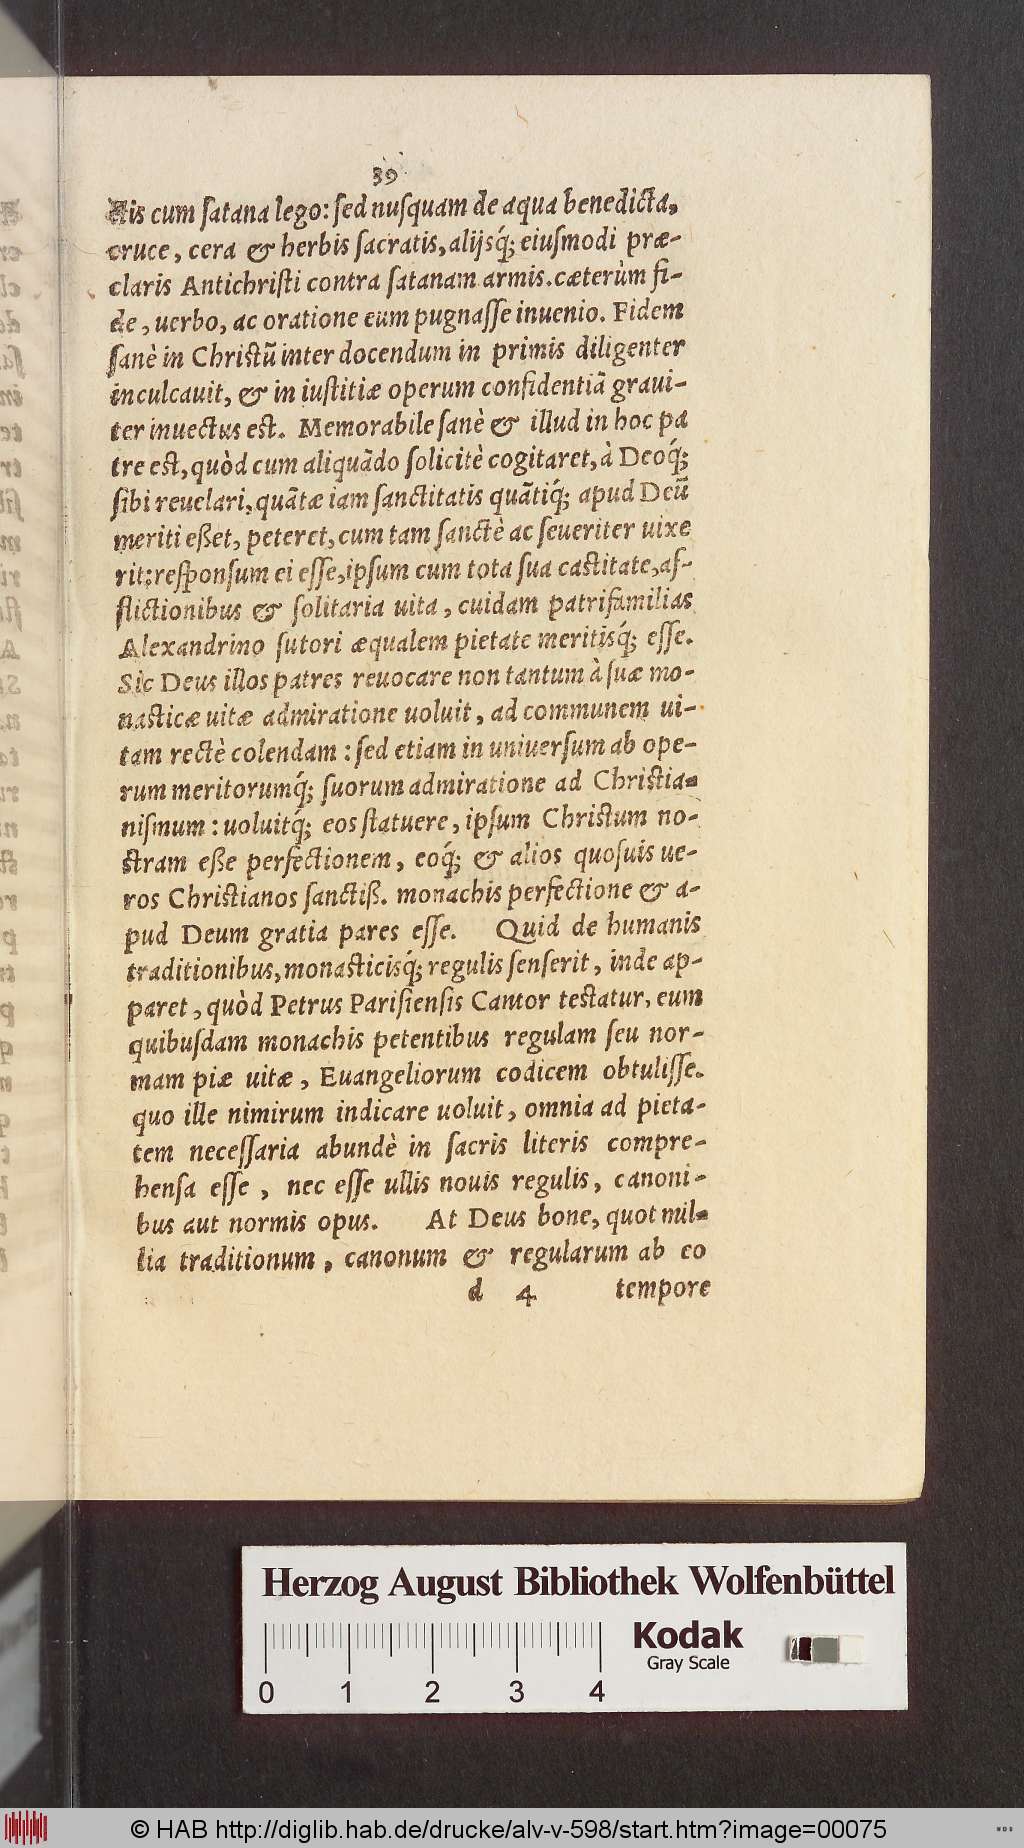 39
his cum ſatana lego: ſed nuſquam de aqua benedicta,
cruce, cera & herbis ſacratis, alijsq́; eiuſmodi præ-
claris Antichriſti contra ſatanam armis. cæterùm fi-
de, uerbo, ac oratione eum pugnaſſe inuenio. Fidem
ſanè in Chriſtũ inter docendum in primis diligenter
inculcauit, & in iuſtitiæ operum confidentiã graui-
ter inuectus est. Memorabile ſanè & illud in hoc pa
tre est, quòd cum aliquãdo ſolicitè cogitaret, à Deoq́;
ſibi reuelari, quãtæ iam ſanctitatis quãtiq́; apud Deũ
meriti eßet, peteret, cum tam ſanctè ac ſeueriter uixe
rit: reſponſum ei eſſe, ipſum cum tota ſua caſtitate, af-
flictionibus & ſolitaria uita, cuidam patrifamilias
Alexandrino ſutori æqualem pietate meritisq́; eſſe.
Sic Deus illos patres reuocare non tantum à ſuæ mo-
naſticæ uitæ admiratione uoluit, ad communem ui-
tam rectè colendam: ſed etiam in uniuerſum ab ope-
rum meritorumq́; ſuorum admiratione ad Chriſtia-
niſmum: uoluitq́; eos ſtatuere, ipſum Chriſtum no-
ſtram eße perfectionem, eoq́; & alios quoſuis ue-
ros Chriſtianos ſanctiß. monachis perfectione & a-
pud Deum gratia pares eſſe. Quid de humanis
traditionibus, monaſticisq́; regulis ſenſerit, inde ap-
paret, quòd Petrus Pariſienſis Cantor teſtatur, eum
quibuſdam monachis petentibus regulam ſeu nor-
mam piæ uitæ, Euangeliorum codicem obtuliſſe.
quo ille nimirum indicare uoluit, omnia ad pieta-
tem neceſſaria abundè in ſacris literis compre-
henſa eſſe, nec eſſe ullis nouis regulis, canoni-
bus aut normis opus. At Deus bone, quot mil-
lia traditionum, canonum & regularum ab eo
d 4 tempore
Herzog August Bibliothek Wolfenbüttel
Kodak
Gray Scale
0 1 2 3 4
© HAB http://diglib.hab.de/drucke/alv-v-598/start.htm?image=00075